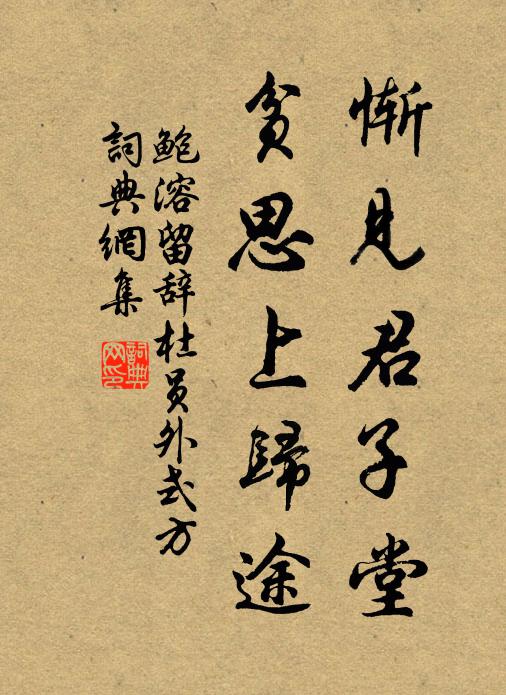 慚見君子堂
貧思上歸途
鲍溶留辞杜员外式方
詞典網集
詞典网印